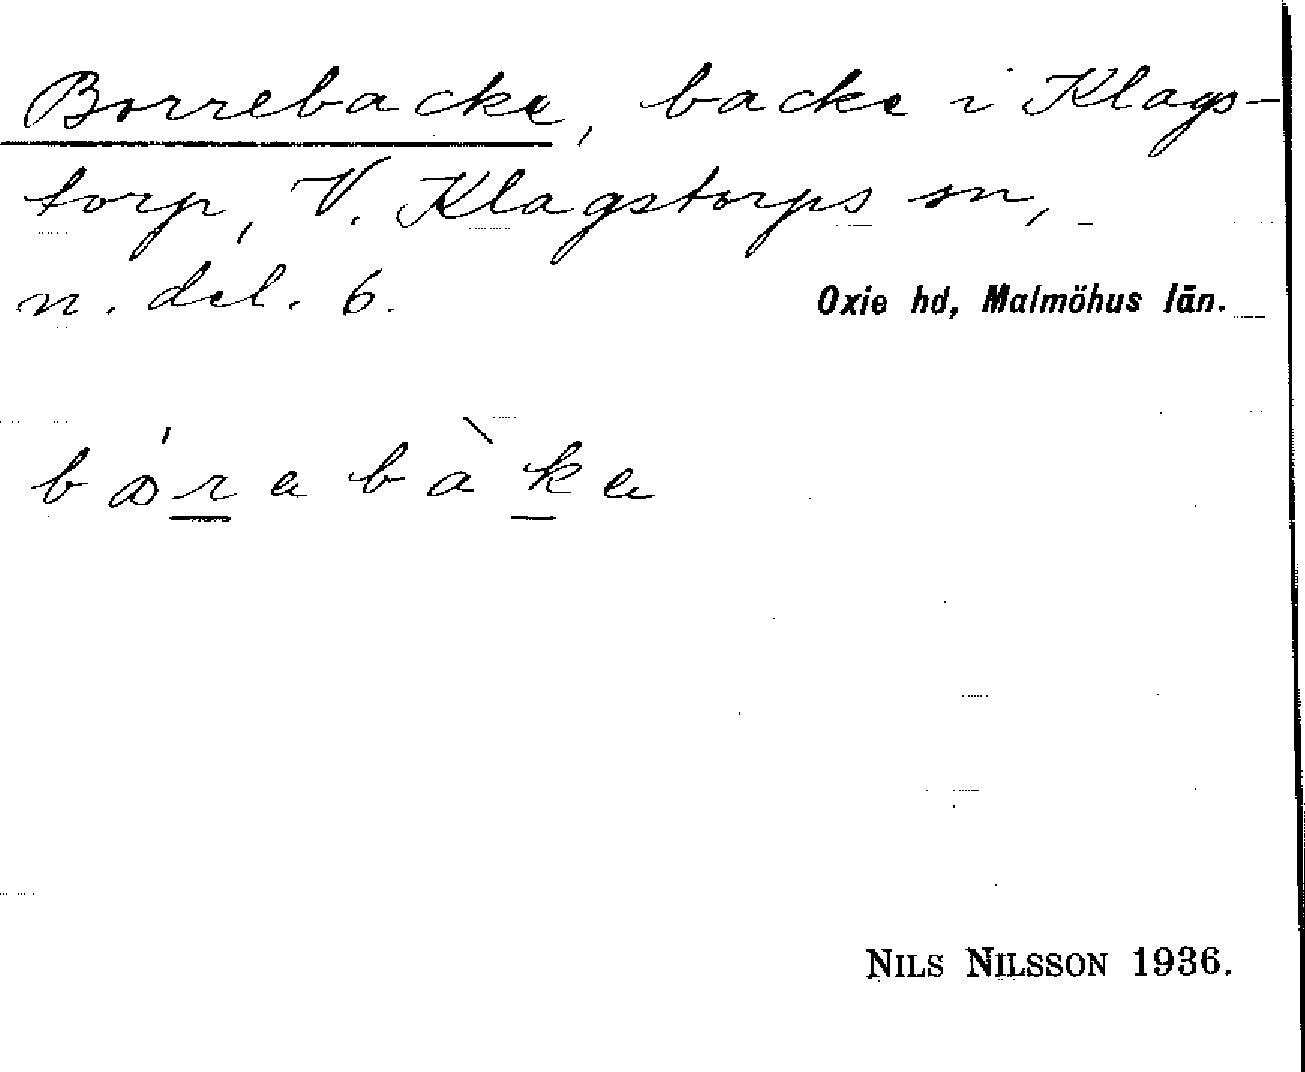 Borrebacke, backe i Klags-
torp, V. Klagstorps sn,
n. del. 6. Oxie hd, Malmöhus län.
bɷ́rabàka
NILS NILSSON 1936.